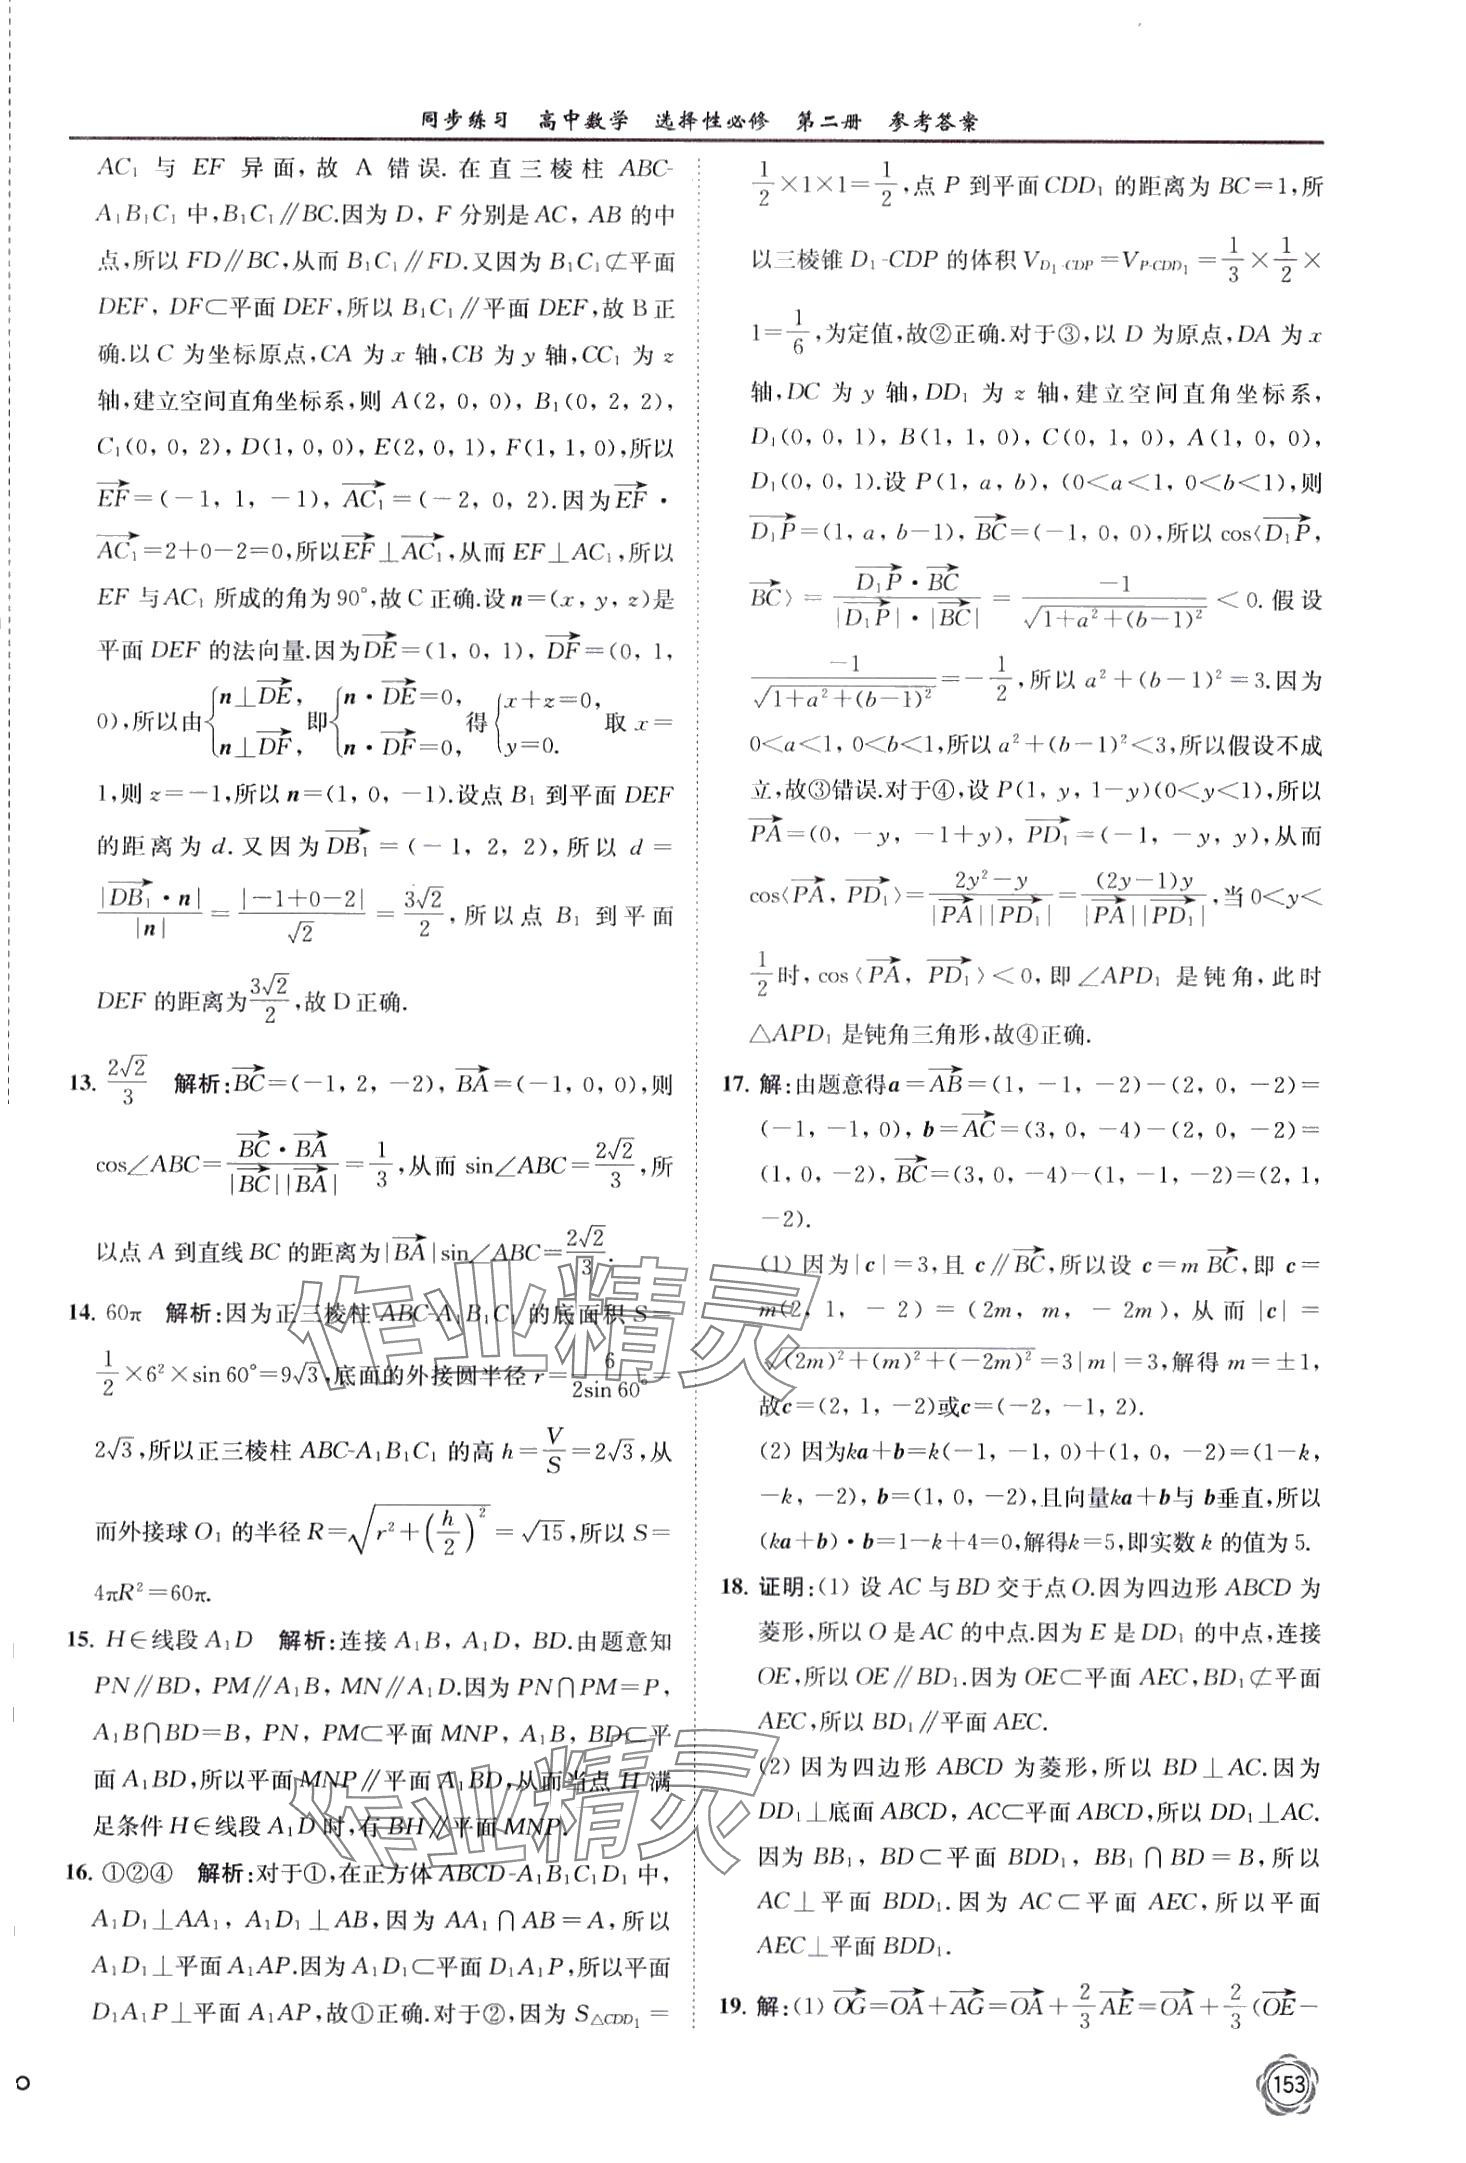 同步练习 高中数学 选择性必修 第二册 参考答案
AC₁ 与 EF 异面,故 A 错误.在直三棱柱 ABC-
A₁B₁C₁ 中,B₁C₁∥BC.因为 D, F 分别是 AC, AB 的中
点,所以 FD∥BC,从而 B₁C₁∥FD.又因为 B₁C₁⊄平面
DEF, DF⊂平面 DEF,所以 B₁C₁∥平面 DEF,故 B 正
确.以 C 为坐标原点,CA 为 x 轴,CB 为 y 轴,CC₁ 为 z
轴,建立空间直角坐标系,则 A(2, 0, 0), B₁(0, 2, 2),
C₁(0, 0, 2), D(1, 0, 0), E(2, 0, 1), F(1, 1, 0),所以
\overrightarrow{EF}=(-1, 1, -1), \overrightarrow{AC₁}=(-2, 0, 2).因为\overrightarrow{EF}·
\overrightarrow{AC₁}=2+0-2=0,所以\overrightarrow{EF}⊥\overrightarrow{AC₁},从而 EF⊥AC₁,所以
EF 与AC₁ 所成的角为 90°,故 C 正确.设 n=(x, y, z)是
平面 DEF 的法向量.因为\overrightarrow{DE}=(1, 0, 1), \overrightarrow{DF}=(0, 1,
0),所以由{n⊥\overrightarrow{DE}, n⊥\overrightarrow{DF}, 即{n·\overrightarrow{DE}=0, n·\overrightarrow{DF}=0, 得{x+z=0, y=0. 取 x=
1,则 z=-1,所以 n=(1, 0, -1).设点 B₁ 到平面 DEF
的距离为 d.又因为\overrightarrow{DB₁}=(-1, 2, 2),所以 d=
\frac{|\overrightarrow{DB₁}·n|}{|n|}=\frac{|-1+0-2|}{√2}=\frac{3√2}{2},所以点 B₁ 到平面
DEF 的距离为\frac{3√2}{2},故 D 正确.
13. \frac{2√2}{3} 解析:\overrightarrow{BC}=(-1, 2, -2), \overrightarrow{BA}=(-1, 0, 0),则
cos∠ABC=\frac{\overrightarrow{BC}·\overrightarrow{BA}}{|\overrightarrow{BC}||\overrightarrow{BA}|}=\frac{1}{3},从而 sin∠ABC=\frac{2√2}{3},所
以点 A 到直线 BC 的距离为|\overrightarrow{BA}|sin∠ABC=\frac{2√2}{3}.
14. 60π 解析:因为正三棱柱 ABC-A₁B₁C₁ 的底面积 S=
\frac{1}{2}×6²×sin 60°=9√3,底面的外接圆半径 r=\frac{6}{2sin 60°}=
2√3,所以正三棱柱 ABC-A₁B₁C₁ 的高 h=\frac{V}{S}=2√3,从
而外接球 O₁ 的半径 R=\sqrt{r²+(\frac{h}{2})²}=√15,所以 S=
4πR²=60π.
15. H∈线段 A₁D 解析:连接 A₁B, A₁D, BD.由题意知
PN∥BD, PM∥A₁B, MN∥A₁D.因为 PN∩PM=P,
A₁B∩BD=B, PN, PM⊂平面 MNP, A₁B, BD⊂平
面 A₁BD,所以平面 MNP∥平面 A₁BD,从而当点 H 满
足条件 H∈线段 A₁D 时,有 BH∥平面 MNP.
16. ①②④ 解析:对于①,在正方体 ABCD-A₁B₁C₁D₁ 中,
A₁D₁⊥AA₁, A₁D₁⊥AB,因为 AA₁∩AB=A,所以
A₁D₁⊥平面 A₁AP.因为 A₁D₁⊂平面 D₁A₁P,所以平面
D₁A₁P⊥平面 A₁AP,故①正确.对于②,因为 S_{△CDD₁}=
\frac{1}{2}×1×1=\frac{1}{2},点 P 到平面 CDD₁ 的距离为 BC=1,所
以三棱锥 D₁-CDP 的体积 V_{D₁-CDP}=V_{P-CDD₁}=\frac{1}{3}×\frac{1}{2}×
1=\frac{1}{6},为定值,故②正确.对于③,以 D 为原点,DA 为 x
轴,DC 为 y 轴,DD₁ 为 z 轴,建立空间直角坐标系,
D₁(0, 0, 1), B(1, 1, 0), C(0, 1, 0), A(1, 0, 0),
D₁(0, 0, 1).设 P(1, a, b), (0<a<1, 0<b<1),则
\overrightarrow{D₁P}=(1, a, b-1), \overrightarrow{BC}=(-1, 0, 0),所以 cos⟨\overrightarrow{D₁P},
\overrightarrow{BC}⟩=\frac{\overrightarrow{D₁P}·\overrightarrow{BC}}{|\overrightarrow{D₁P}|·|\overrightarrow{BC}|}=\frac{-1}{\sqrt{1+a²+(b-1)²}}<0.假设
\frac{-1}{\sqrt{1+a²+(b-1)²}}=-\frac{1}{2},所以 a²+(b-1)²=3.因为
0<a<1, 0<b<1,所以 a²+(b-1)²<3,所以假设不成
立,故③错误.对于④,设 P(1, y, 1-y)(0<y<1),所以
\overrightarrow{PA}=(0, -y, -1+y), \overrightarrow{PD₁}=(-1, -y, y),从而
cos⟨\overrightarrow{PA}, \overrightarrow{PD₁}⟩=\frac{2y²-y}{|\overrightarrow{PA}||\overrightarrow{PD₁}|}=\frac{(2y-1)y}{|\overrightarrow{PA}||\overrightarrow{PD₁}|},当 0<y<
\frac{1}{2}时,cos⟨\overrightarrow{PA}, \overrightarrow{PD₁}⟩<0,即∠APD₁ 是钝角,此时
△APD₁ 是钝角三角形,故④正确.
17. 解:由题意得a=\overrightarrow{AB}=(1, -1, -2)-(2, 0, -2)=
(-1, -1, 0), b=\overrightarrow{AC}=(3, 0, -4)-(2, 0, -2)=
(1, 0, -2), \overrightarrow{BC}=(3, 0, -4)-(1, -1, -2)=(2, 1,
-2).
(1) 因为|c|=3,且 c∥\overrightarrow{BC},所以设 c=m\overrightarrow{BC},即 c=
m(2, 1, -2)=(2m, m, -2m),从而|c|=
\sqrt{(2m)²+(m)²+(-2m)²}=3|m|=3,解得 m=±1,
故c=(2, 1, -2)或c=(-2, -1, 2).
(2) 因为ka+b=k(-1, -1, 0)+(1, 0, -2)=(1-k,
-k, -2), b=(1, 0, -2),且向量ka+b与 b垂直,所以
(ka+b)·b=1-k+4=0,解得k=5,即实数 k 的值为 5.
18. 证明:(1) 设 AC 与 BD 交于点 O.因为四边形 ABCD 为
菱形,所以 O 是 AC 的中点.因为 E 是 DD₁ 的中点,连接
OE,所以 OE∥BD₁.因为 OE⊂平面 AEC,BD₁⊄平面
AEC,所以 BD₁∥平面 AEC.
(2) 因为四边形 ABCD 为菱形,所以 BD⊥AC.因为
DD₁⊥底面 ABCD, AC⊂平面 ABCD,所以 DD₁⊥AC.
因为 BB₁, BD⊂平面 BDD₁, BB₁∩BD=B,所以
AC⊥平面 BDD₁.因为 AC⊂平面 AEC,所以平面
AEC⊥平面 BDD₁.
19. 解:(1) \overrightarrow{OG}=\overrightarrow{OA}+\overrightarrow{AG}=\overrightarrow{OA}+\frac{2}{3}\overrightarrow{AE}=\overrightarrow{OA}+\frac{2}{3}(\overrightarrow{OE}-
153
作业精灵
作业精灵